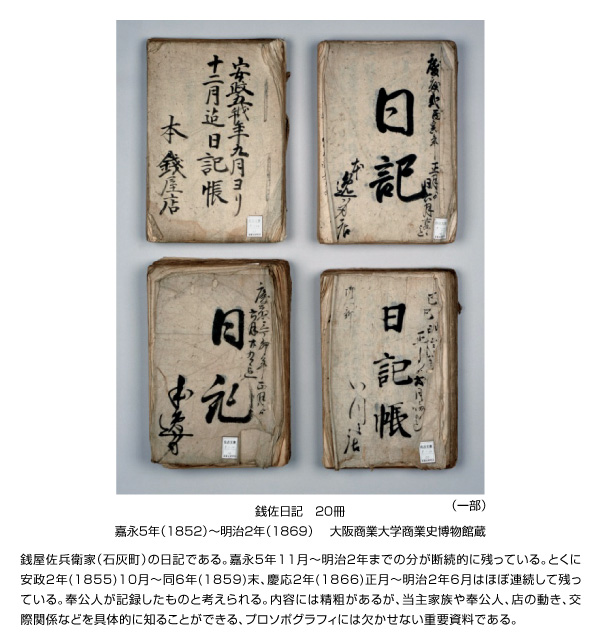 安政五戊年九月ヨリ
十二月迄日記帳
本銭屋店
日記
日記
日記帳
（一部）
銭佐日記　20冊
嘉永5年（1852）～明治2年（1869）　大阪商業大学商業史博物館蔵
銭屋佐兵衛家（石灰町）の日記である。嘉永5年11月～明治2年までの分が断続的に残っている。とくに
安政2年（1855）10月～同6年（1859）末、慶応2年（1866）正月～明治2年6月はほぼ連続して残っ
ている。奉公人が記録したものと考えられる。内容には精粗があるが、当主家族や奉公人、店の動き、交
際関係などを具体的に知ることができる、プロソポグラフィには欠かせない重要資料である。